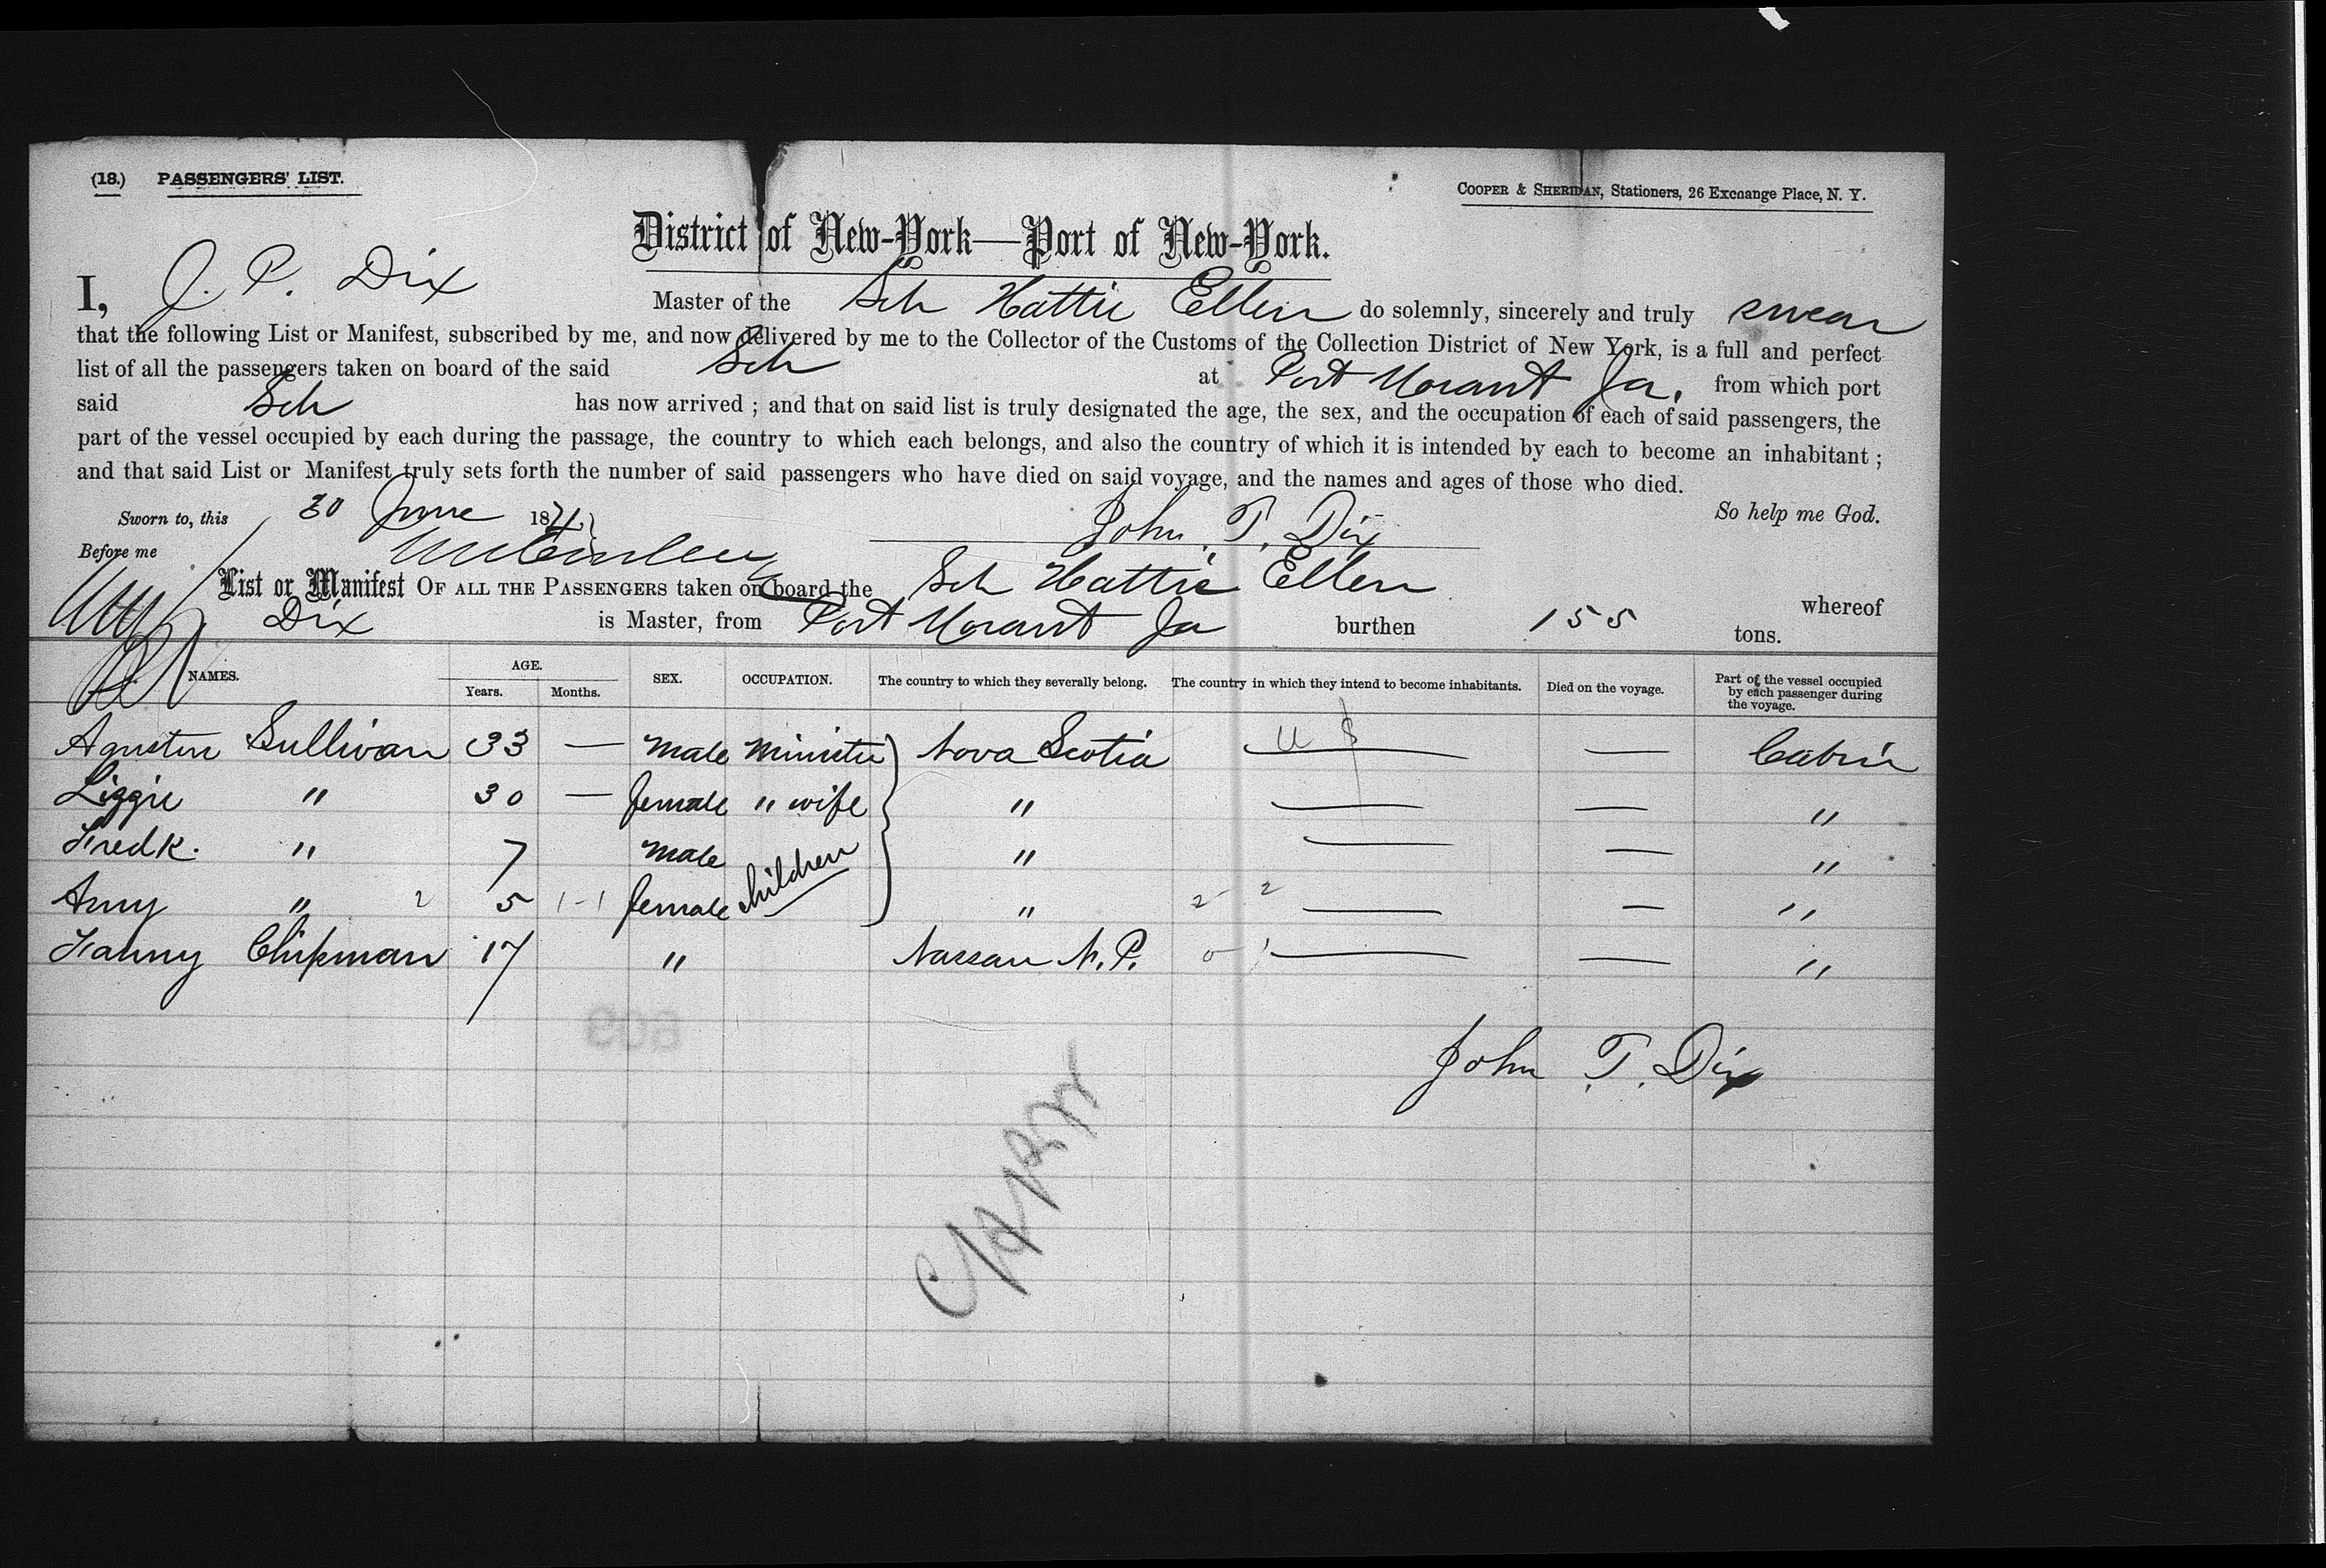 (18.) PASSENGERS' LIST.
COOPER & SHERIDAN, Stationers, 26 Exchange Place, N. Y.
District of New-York—Port of New-York.
I, J. P. Dix Master of the Sch Hattie Ellen do solemnly, sincerely and truly swear
that the following List or Manifest, subscribed by me, and now delivered by me to the Collector of the Customs of the Collection District of New York, is a full and perfect
list of all the passengers taken on board of the said Sch at Port Morant Ja. from which port
said Sch has now arrived ; and that on said list is truly designated the age, the sex, and the occupation of each of said passengers, the
part of the vessel occupied by each during the passage, the country to which each belongs, and also the country of which it is intended by each to become an inhabitant ;
and that said List or Manifest truly sets forth the number of said passengers who have died on said voyage, and the names and ages of those who died.
So help me God.
Sworn to, this 30 June 18
John T. Dix
Before me
List or Manifest OF ALL THE PASSENGERS taken on board the Sch Hattie Ellen whereof
Dix is Master, from Port Morant Ja burthen 155 tons.
NAMES. AGE. Years. Months. SEX. OCCUPATION. The country to which they severally belong. The country in which they intend to become inhabitants. Died on the voyage. Part of the vessel occupied by each passenger during the voyage.
Agustin Sullivan 33 — male Minister Nova Scotia U S — Cabin
Lizzie " 30 — female " wife " — — "
Fredk. " 7 male children " — — "
Amy " 2 5 1-1 female " 2 2 — — "
Fanny Chipman 17 " Nassau N. P. 0 1 — — "
John T. Dix